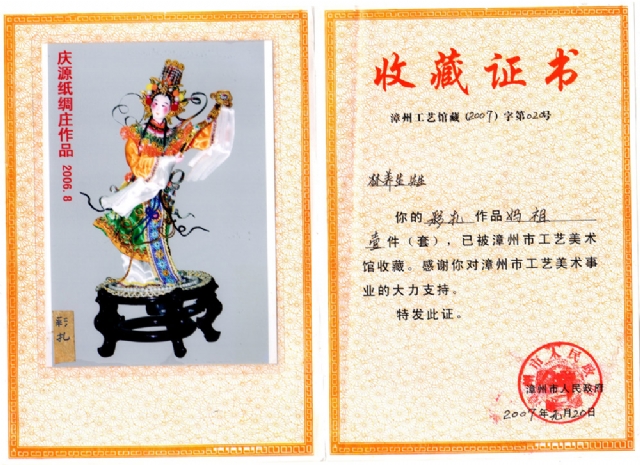 庆源纸绸庄作品 2006.8
彩扎
收藏证书
漳州工艺馆藏(2007)字第020号
林养生
你的彩扎作品妈祖
壹件(套),已被漳州市工艺美术
馆收藏。感谢你对漳州市工艺美术事
业的大力支持。
特发此证。
漳州市人民政府
2007年元月20日